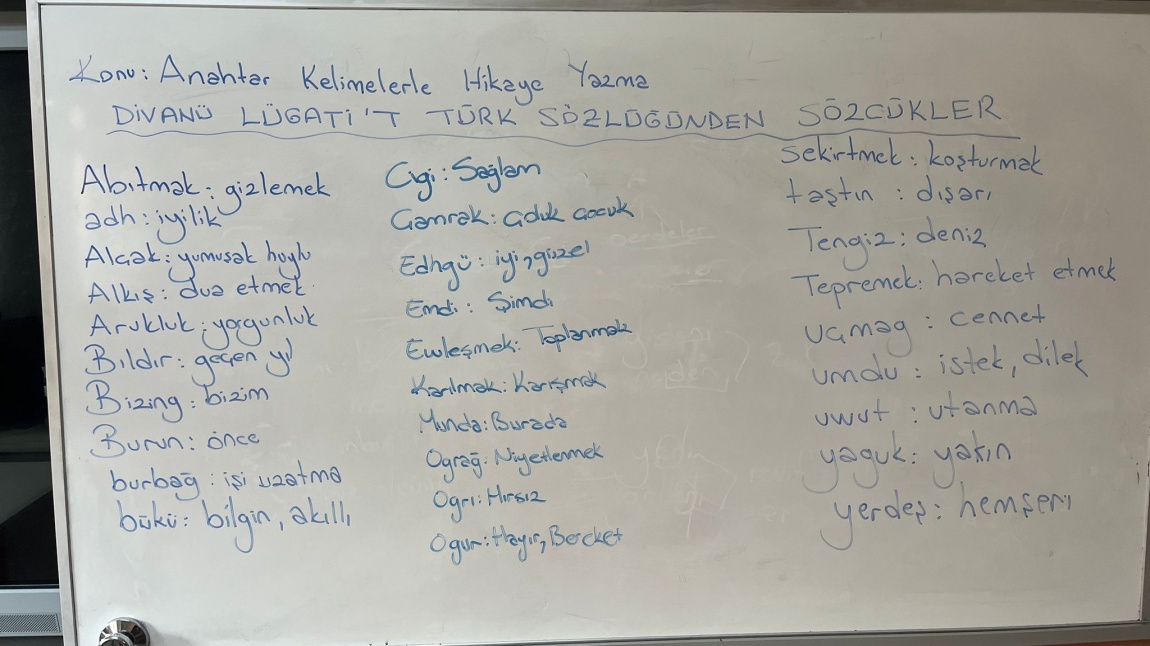 Konu: Anahtar Kelimelerle Hikaye Yazma
DİVANÜ LÜGATİ'T TÜRK SÖZLÜĞÜNDEN SÖZCÜKLER
Abıtmak: gizlemek
adh: iyilik
Alçak: yumuşak huylu
Alkış: dua etmek
Arukluk: yorgunluk
Bıldır: geçen yıl
Bizing: bizim
Burun: önce
burbağ: işi uzatma
bükü: bilgin, akıllı
Çigi: Sağlam
Çamrak: çoluk çocuk
Edhgü: iyi, güzel
Emdi: Şimdi
Ewleşmek: Toplanmak
Karılmak: Karışmak
Munda: Burada
Ograğ: Niyetlenmek
Ogrı: Hırsız
Ogur: Hayır, Bereket
sekirtmek: koşturmak
taştın: dışarı
Tengiz: deniz
Tepremek: hareket etmek
uçmag: cennet
umdu: istek, dilek
uwut: utanma
yaguk: yakın
yerdeş: hemşeri